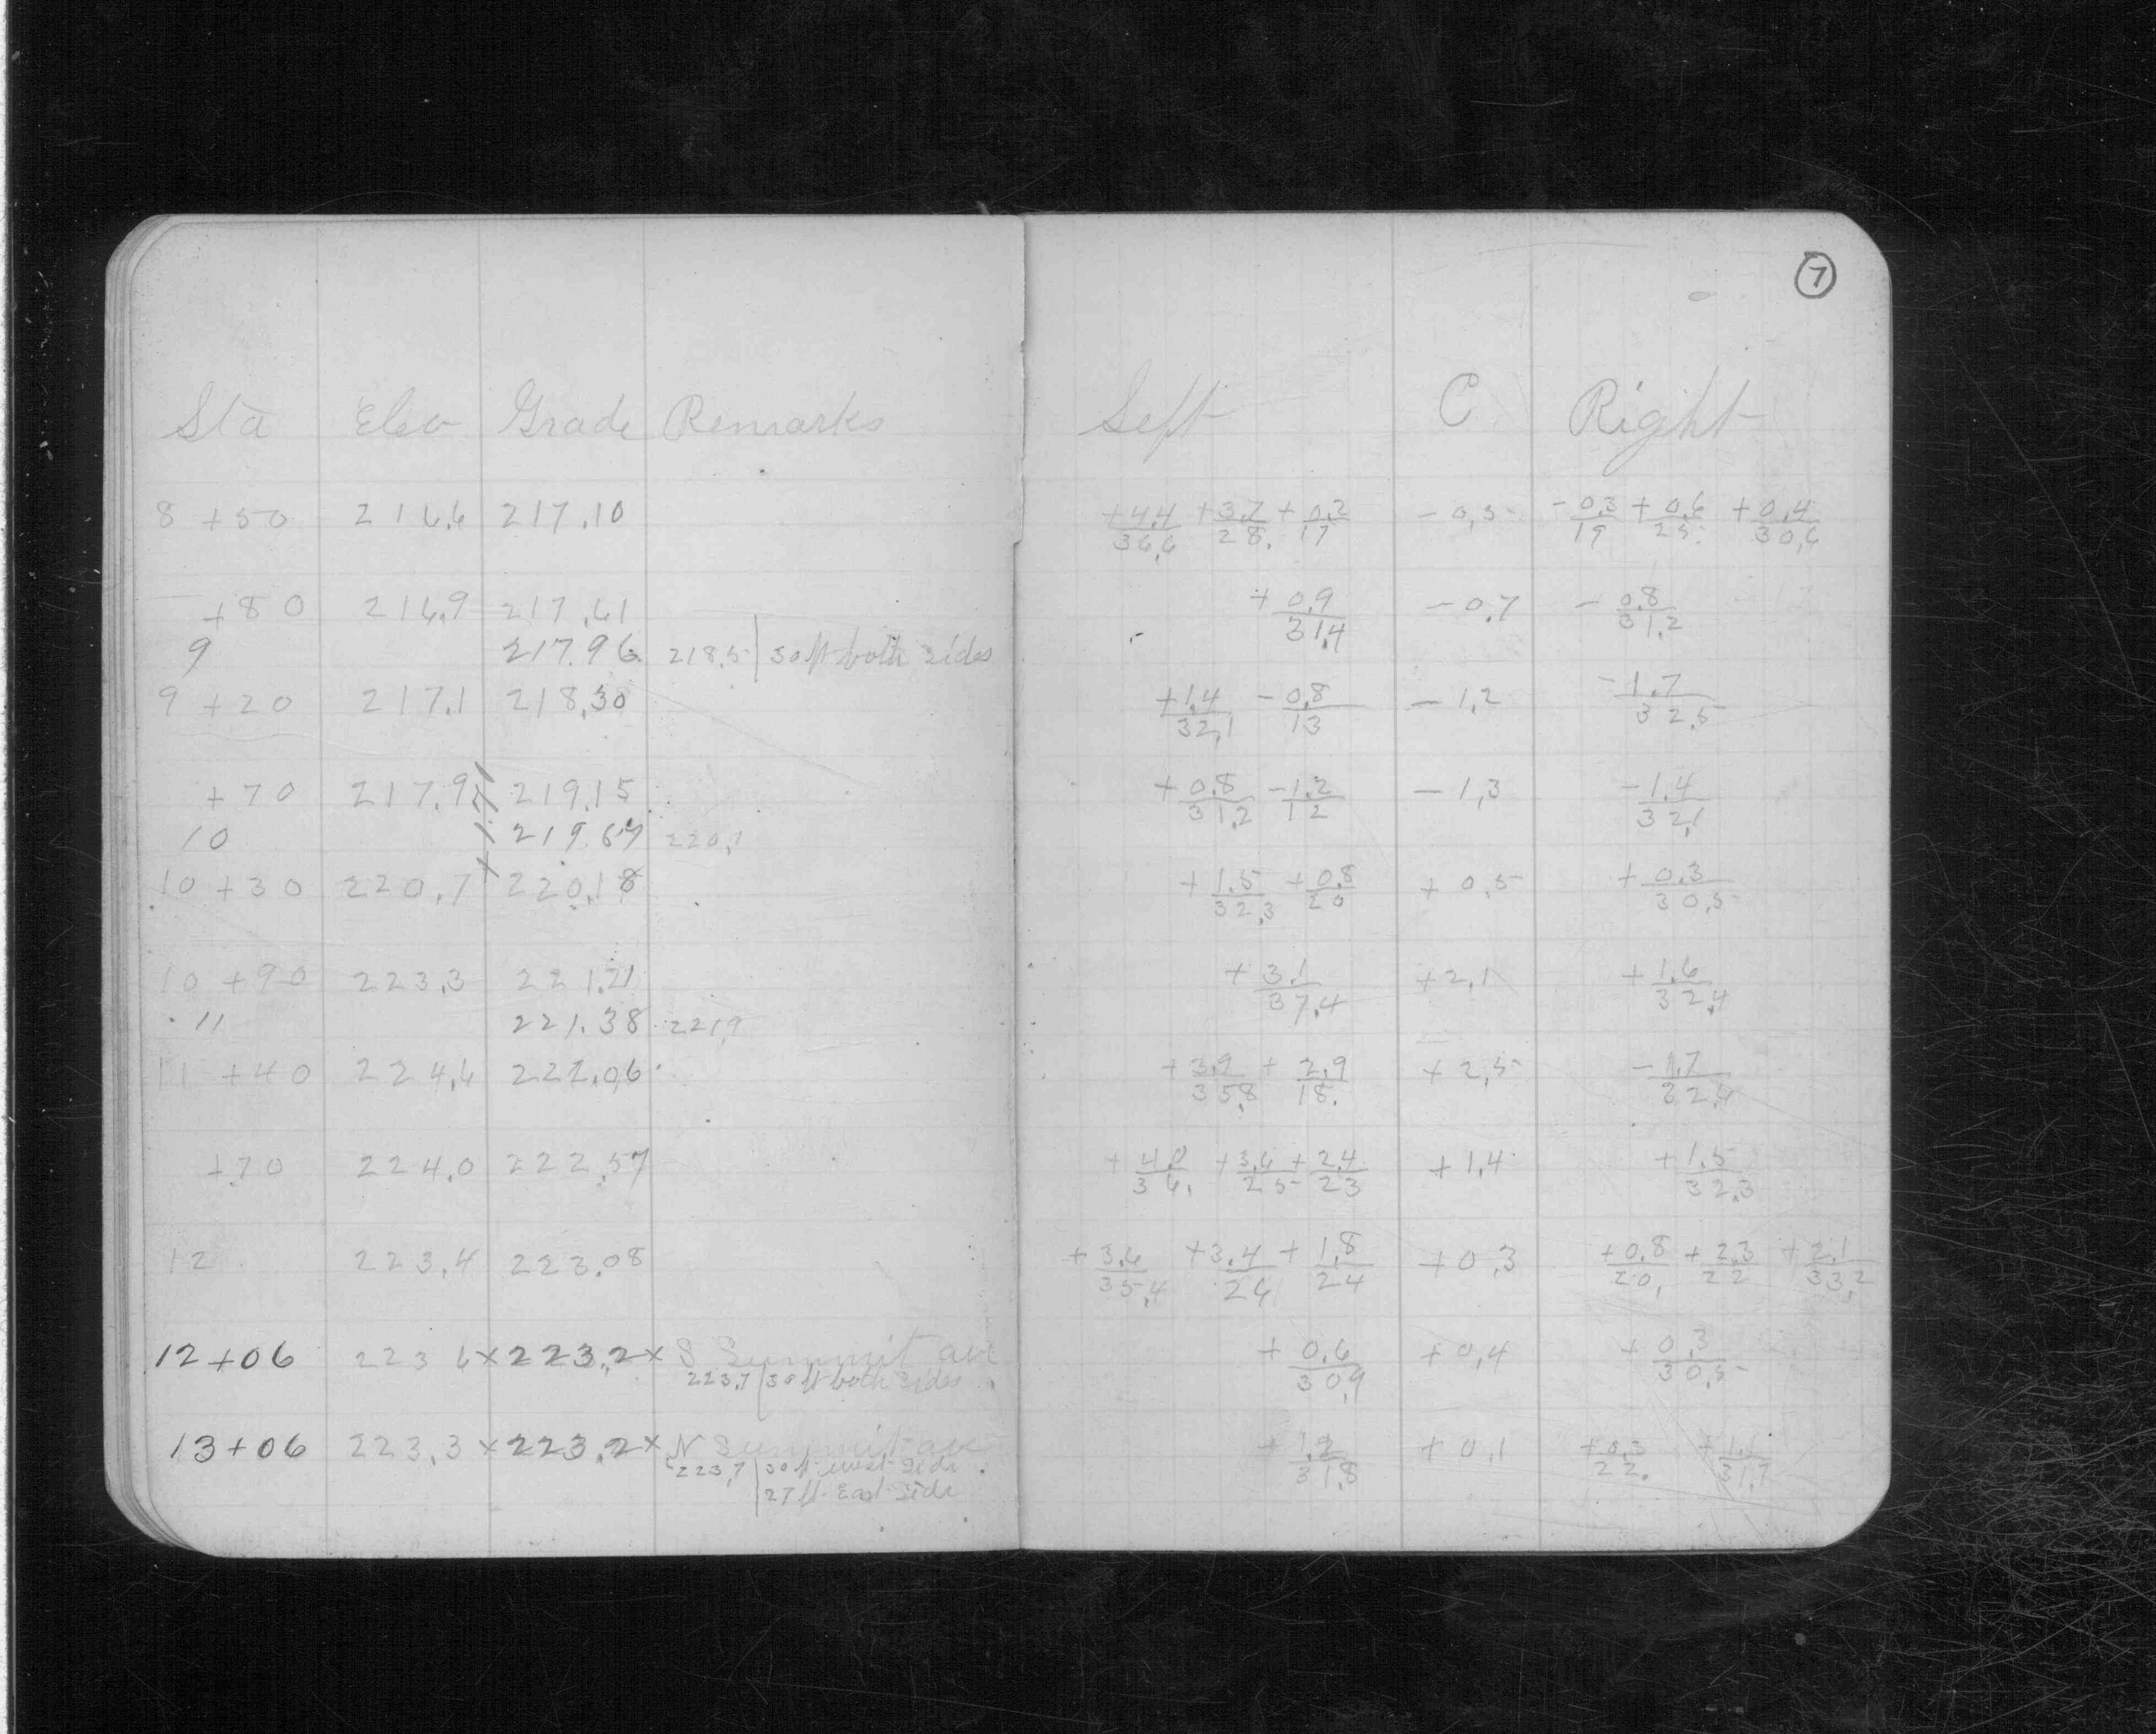 7
Sta Elev Grade Remarks
8 +50 216.6 217.10
+80 216.9 217.61
9 217.96 218.5 | 30 ft both sides
9 +20 217.1 218.30
+70 217.9 219.15
10 219.67 220.1
10 +30 220.7 220.18
10 +90 223.3 221.21
11 221.38 221.9
11 +40 224.6 222.06
+70 224.0 222.57
12 223.4 223.08
12+06 223 6 x 223.2 x S Summit ave
223.7 | 30 ft both sides
13+06 223.3 x 223.2 x N Summit ave
223.7 | 30 ft west side
27 ft East side
Left C Right
+4.4/36.6 +3.7/28. +0.2/17 -0.5 -0.3/19 +0.6/25. +0.4/30.6
+0.9/31.4 -0.7 -0.8/31.2
+1.4/32.1 -0.8/13 -1.2 -1.7/32.5
+0.8/31.2 -1.2/12 -1.3 -1.4/32.1
+1.5/32.3 +0.8/20 +0.5 +0.3/30.5
+3.1/37.4 +2.1 +1.6/32.4
+3.9/35.8 +2.9/18. +2.5 -1.7/32.4
+4.0/36. +3.6/25 +2.4/23 +1.4 +1.5/32.3
+3.6/35.4 +3.4/26 +1.8/24 +0.3 +0.8/20. +2.3/22 +2.1/33.2
+0.6/30.9 +0.4 +0.3/30.5
+1.2/31.8 +0.1 +0.3/22. +1.1/31.7